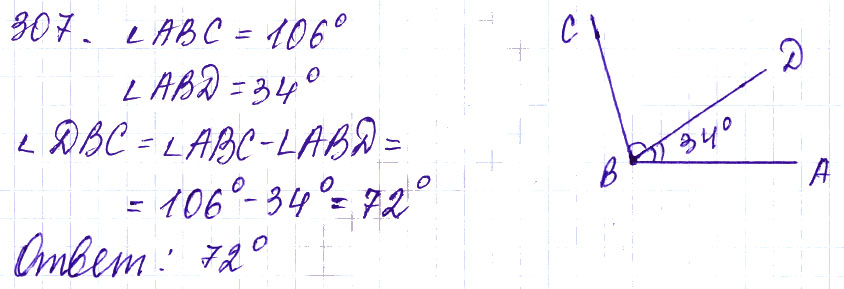 307. ∠ABC = 106°
∠ABD = 34°
∠DBC = ∠ABC - ∠ABD =
= 106° - 34° = 72°
Ответ: 72°
C
D
34°
B
A